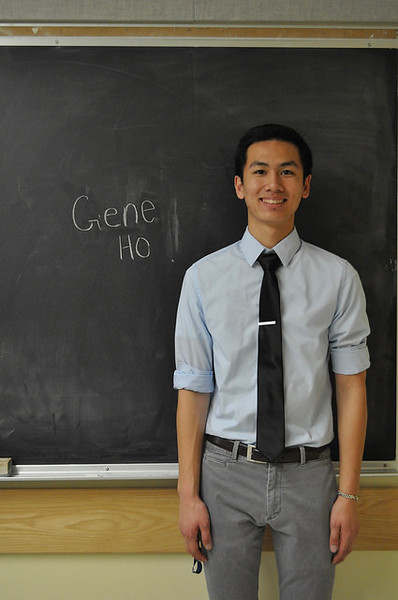 Gene
HO